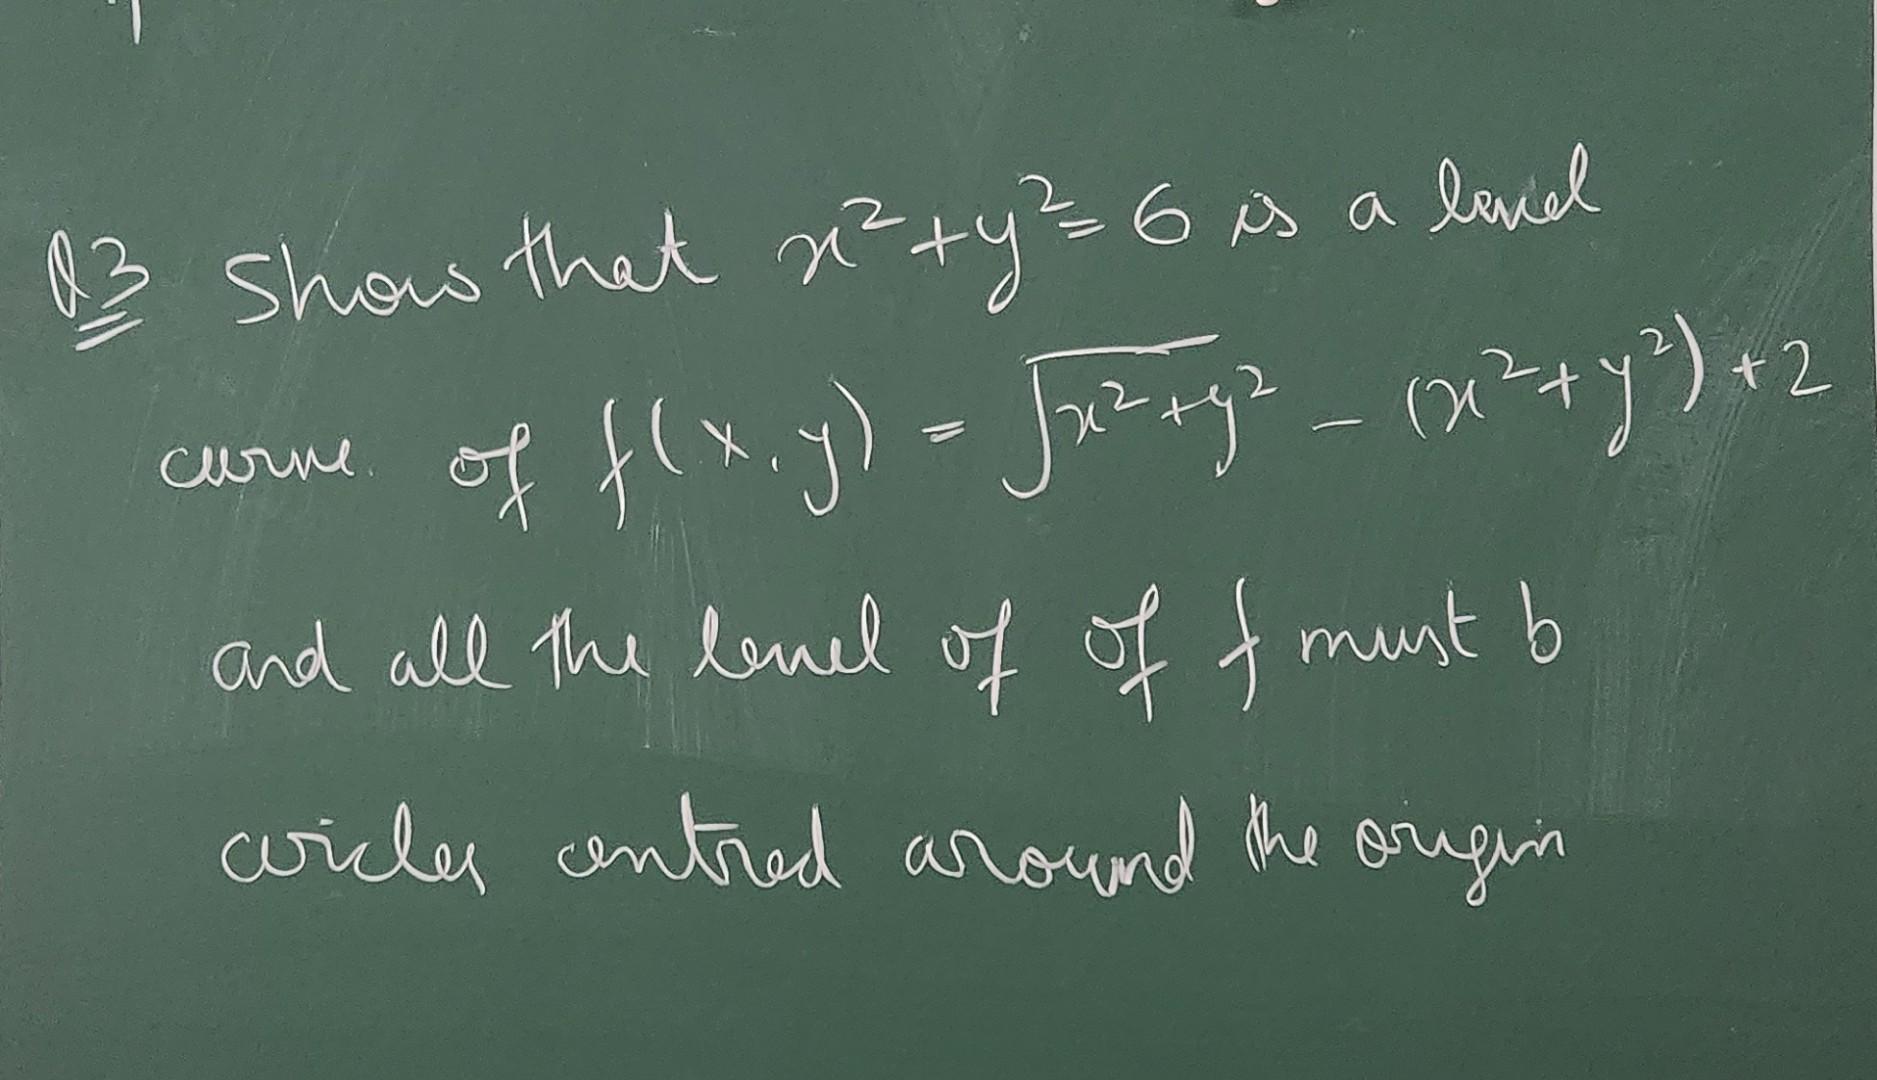 Q3 Show that x²+y²=6 is a level
curve. of f(x,y) = √x²+y² - (x²+y²)+2
and all the level of of f must b
circles centred around the origin